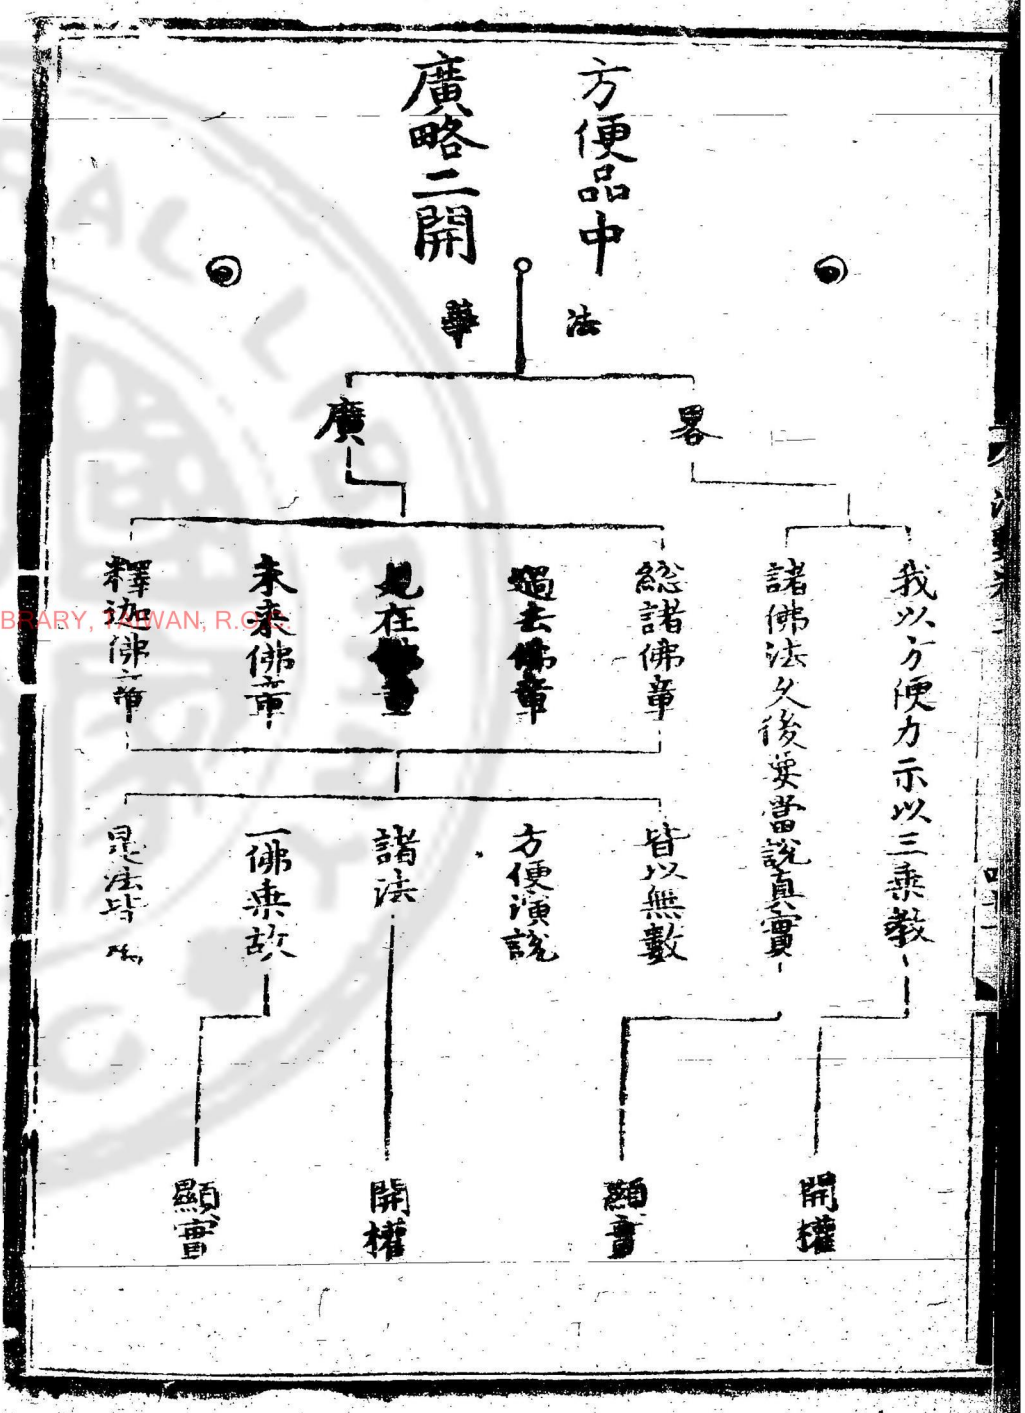 方便品中
廣略二開
法
華
畧
廣
我以方便力示以三乘教
諸佛法久後要當說真實
総諸佛章
過去佛章
見在佛章
未来佛章
釋迦佛章
皆以無數
方便演說
諸法
一佛乘故
是法皆為
開權
顯實
開權
顯實
BRARY, TAIWAN, R.O.C.